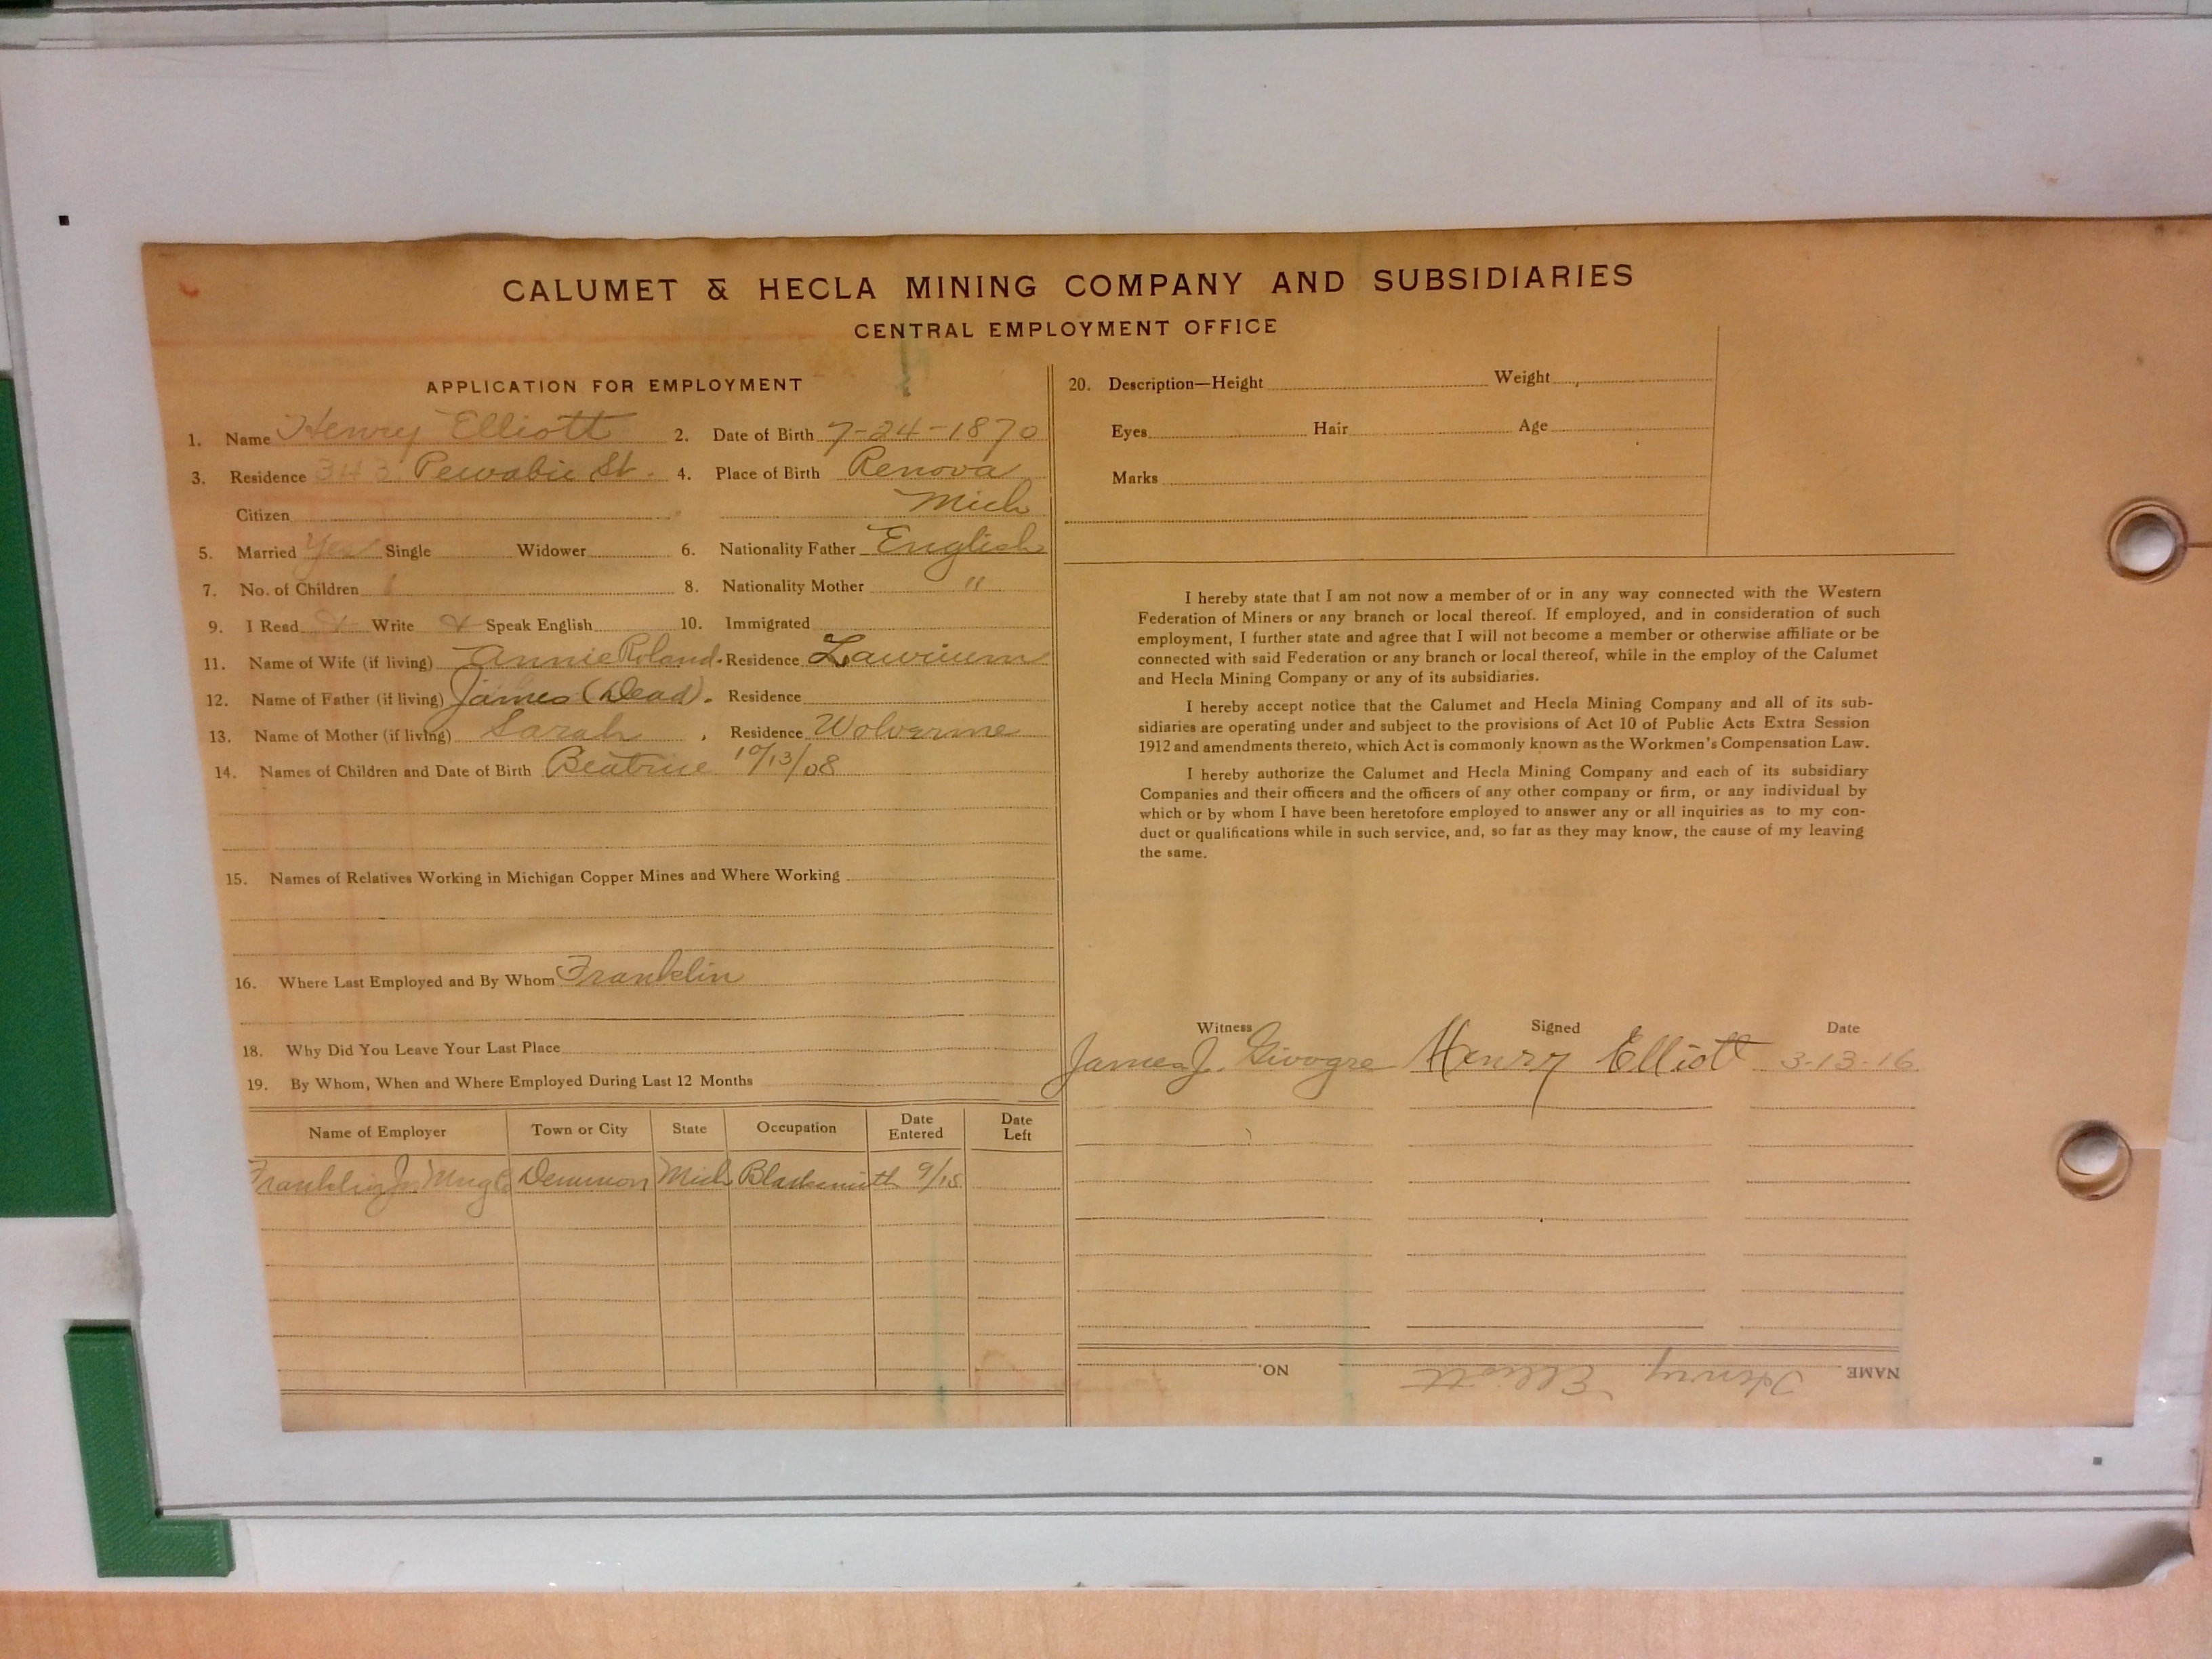 CALUMET & HECLA MINING COMPANY AND SUBSIDIARIES
CENTRAL EMPLOYMENT OFFICE
APPLICATION FOR EMPLOYMENT
1. Name Henry Elliott 2. Date of Birth 7-24-1870
3. Residence 343 Pewabic St. 4. Place of Birth Renova
Citizen Mich
5. Married Yes Single Widower 6. Nationality Father English
7. No. of Children 1 8. Nationality Mother "
9. I Read Write Speak English 10. Immigrated
11. Name of Wife (if living) Annie Roland. Residence Laurium
12. Name of Father (if living) James (Dead). Residence
13. Name of Mother (if living) Sarah, Residence Wolverine
14. Names of Children and Date of Birth Beatrice 10/13/08
15. Names of Relatives Working in Michigan Copper Mines and Where Working
16. Where Last Employed and By Whom Franklin
18. Why Did You Leave Your Last Place
19. By Whom, When and Where Employed During Last 12 Months
Name of Employer Town or City State Occupation Date Entered Date Left
Franklin Jr. Mng Co Demmon Mich Blacksmith 9/15
20. Description—Height Weight
Eyes Hair Age
Marks
I hereby state that I am not now a member of or in any way connected with the Western
Federation of Miners or any branch or local thereof. If employed, and in consideration of such
employment, I further state and agree that I will not become a member or otherwise affiliate or be
connected with said Federation or any branch or local thereof, while in the employ of the Calumet
and Hecla Mining Company or any of its subsidiaries.
I hereby accept notice that the Calumet and Hecla Mining Company and all of its sub-
sidiaries are operating under and subject to the provisions of Act 10 of Public Acts Extra Session
1912 and amendments thereto, which Act is commonly known as the Workmen's Compensation Law.
I hereby authorize the Calumet and Hecla Mining Company and each of its subsidiary
Companies and their officers and the officers of any other company or firm, or any individual by
which or by whom I have been heretofore employed to answer any or all inquiries as to my con-
duct or qualifications while in such service, and, so far as they may know, the cause of my leaving
the same.
Witness Signed Date
James J. Henry Elliott 3-13-16
NAME Henry Elliott NO.